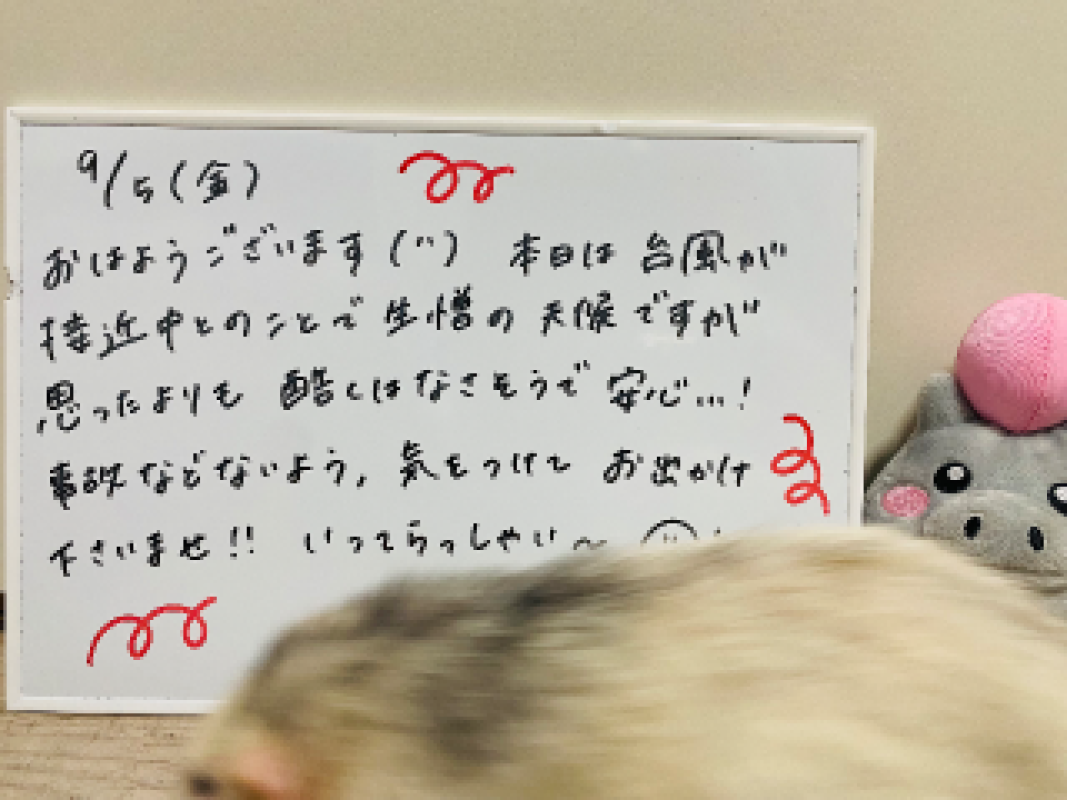 9/5(金)
おはようございます(¨) 本日は台風が
接近中とのことで生憎の天候ですが
思ったよりも酷くはなさそうで安心…!
事故などないよう,気をつけて お出かけ
下さいませ!! いってらっしゃい〜